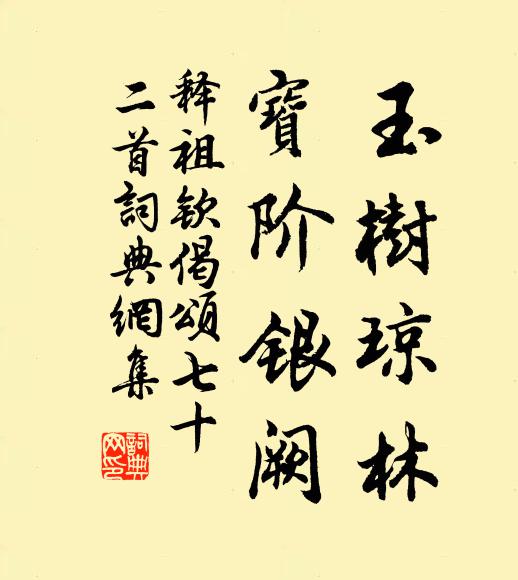 玉樹琼林
寶阶銀阙
释祖钦偈頌七十
二首詞典網集
詞典网印